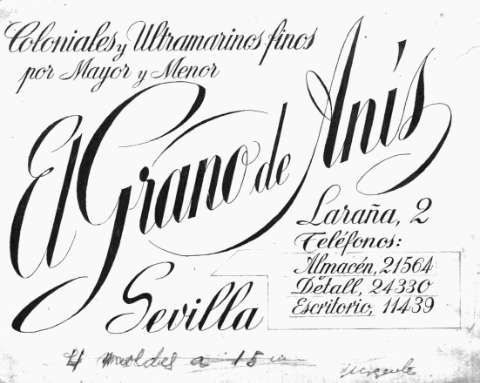 Coloniales y Ultramarinos finos
por Mayor y Menor
El Grano de Anís
Laraña, 2
Teléfonos:
Almacén, 21564
Detall, 24330
Escritorio, 11439
Sevilla
4 moldes a 15
urgente